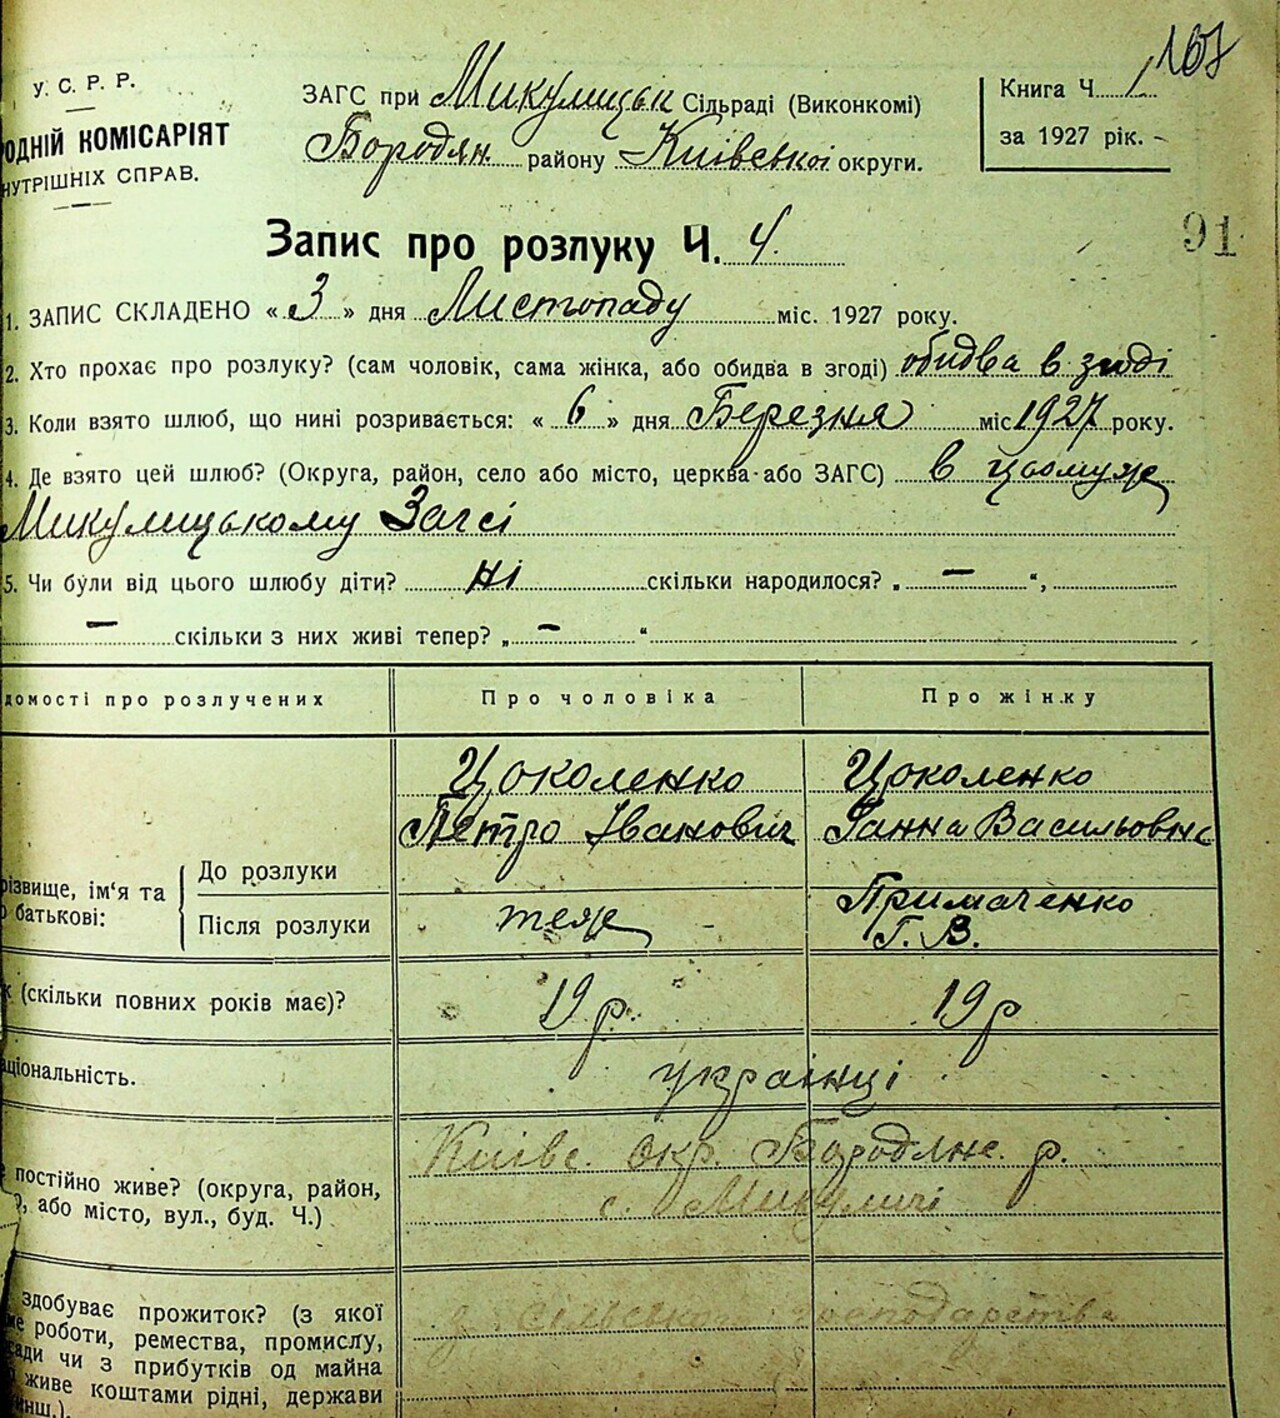 167
У. С. Р. Р.
ОДНІЙ КОМІСАРІЯТ
НУТРІШНІХ СПРАВ.
ЗАГС при Микулицьк Сільраді (Виконкомі)
Бородян. району Київської округи.
Книга Ч. 1
за 1927 рік.
91
Запис про розлуку Ч. 4
1. ЗАПИС СКЛАДЕНО « 3 » дня Листопаду міс. 1927 року.
2. Хто прохає про розлуку? (сам чоловік, сама жінка, або обидва в згоді) обидва в згоді
3. Коли взято шлюб, що нині розривається: « 6 » дня Березня міс 1927 року.
4. Де взято цей шлюб? (Округа, район, село або місто, церква або ЗАГС) в цьомуж
Микулицькому Загсі
5. Чи були від цього шлюбу діти? ні скільки народилося? „ — “,
— скільки з них живі тепер? „ — “
домості про розлучених Про чоловіка Про жінку
Цоколенко Цоколенко
Петро Іванович Ганна Васильовна
різвище, ім'я та
батькові:
До розлуки
Після розлуки теж Примаченко
Г. В.
к (скільки повних років має)? 19 р. 19 р
аціональність. українці
постійно живе? (округа, район,
або місто, вул., буд. Ч.)
Київс. окр. Бородянс. р.
с. Микуличі
здобуває прожиток? (з якої
роботи, ремества, промислу,
сади чи з прибутків од майна
живе коштами рідні, держави
инш.).
з сільського господарства